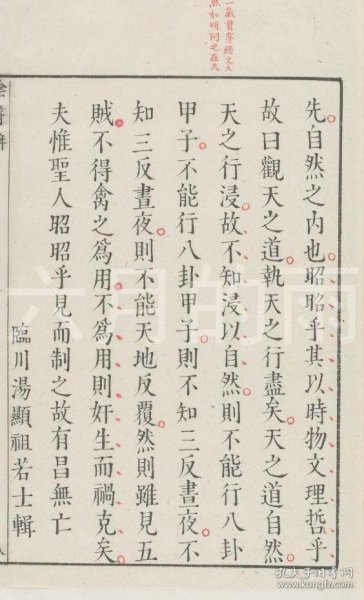 一氣貫穿經文
然如明河之在天
先自然之内也昭昭乎其以時物文理哲乎
故曰觀天之道執天之行盡矣天之道自然
天之行浸故不知浸以自然則不能行八卦
甲子不能行八卦甲子則不知三反晝夜不
知三反晝夜則不能天地反覆然則雖見五
賊不得禽之爲用不爲用則奸生而禍克矣
夫惟聖人昭昭乎見而制之故有昌無亡
臨川湯顯祖若士輯
陰符解
八
六月的雨
孔夫子旧书网